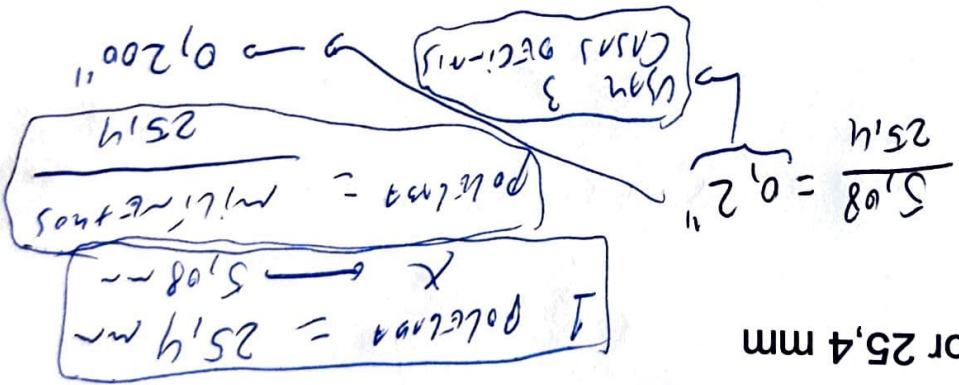 or 25,4 mm
1 POLEGADA = 25,4 mm
X — 5,08 mm
POLEGADA = MILÍMETROS
25,4
5,08
25,4
= 0,2"
USAR 3
CASAS DECIMAIS
0,200"